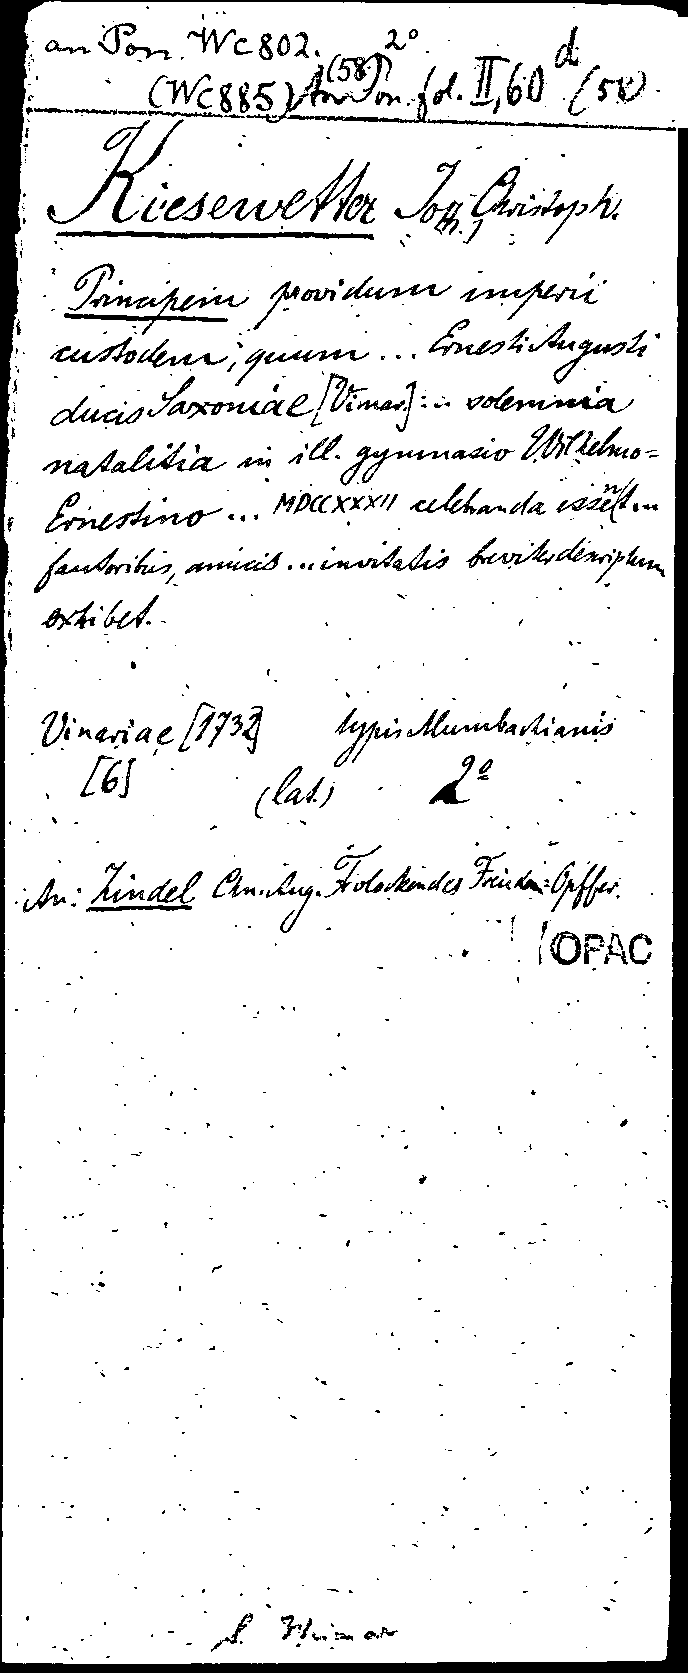 an Pon. Wc 802. 2°
(Wc 885) An Pon. fol. II, 60 d (58)
Kiesewetter Joh. Christoph.
Principem providum imperii
custodem, quum ... Ernesti Augusti
ducis Saxoniae [Vimar.] ... solemnia
natalitia in ill. gymnasio Wilhelmo=
Ernestino ... MDCCXXXII celebranda essent ...
fautoribus, amicis ... invitatis breviter descriptum
exhibet.
Vinariae [1732] typis Mumbachianis
[6] (lat.) 2°
An: Zindel Chn. Aug. Frolockendes Freuden=Opffer.
OPAC
s. Weimar